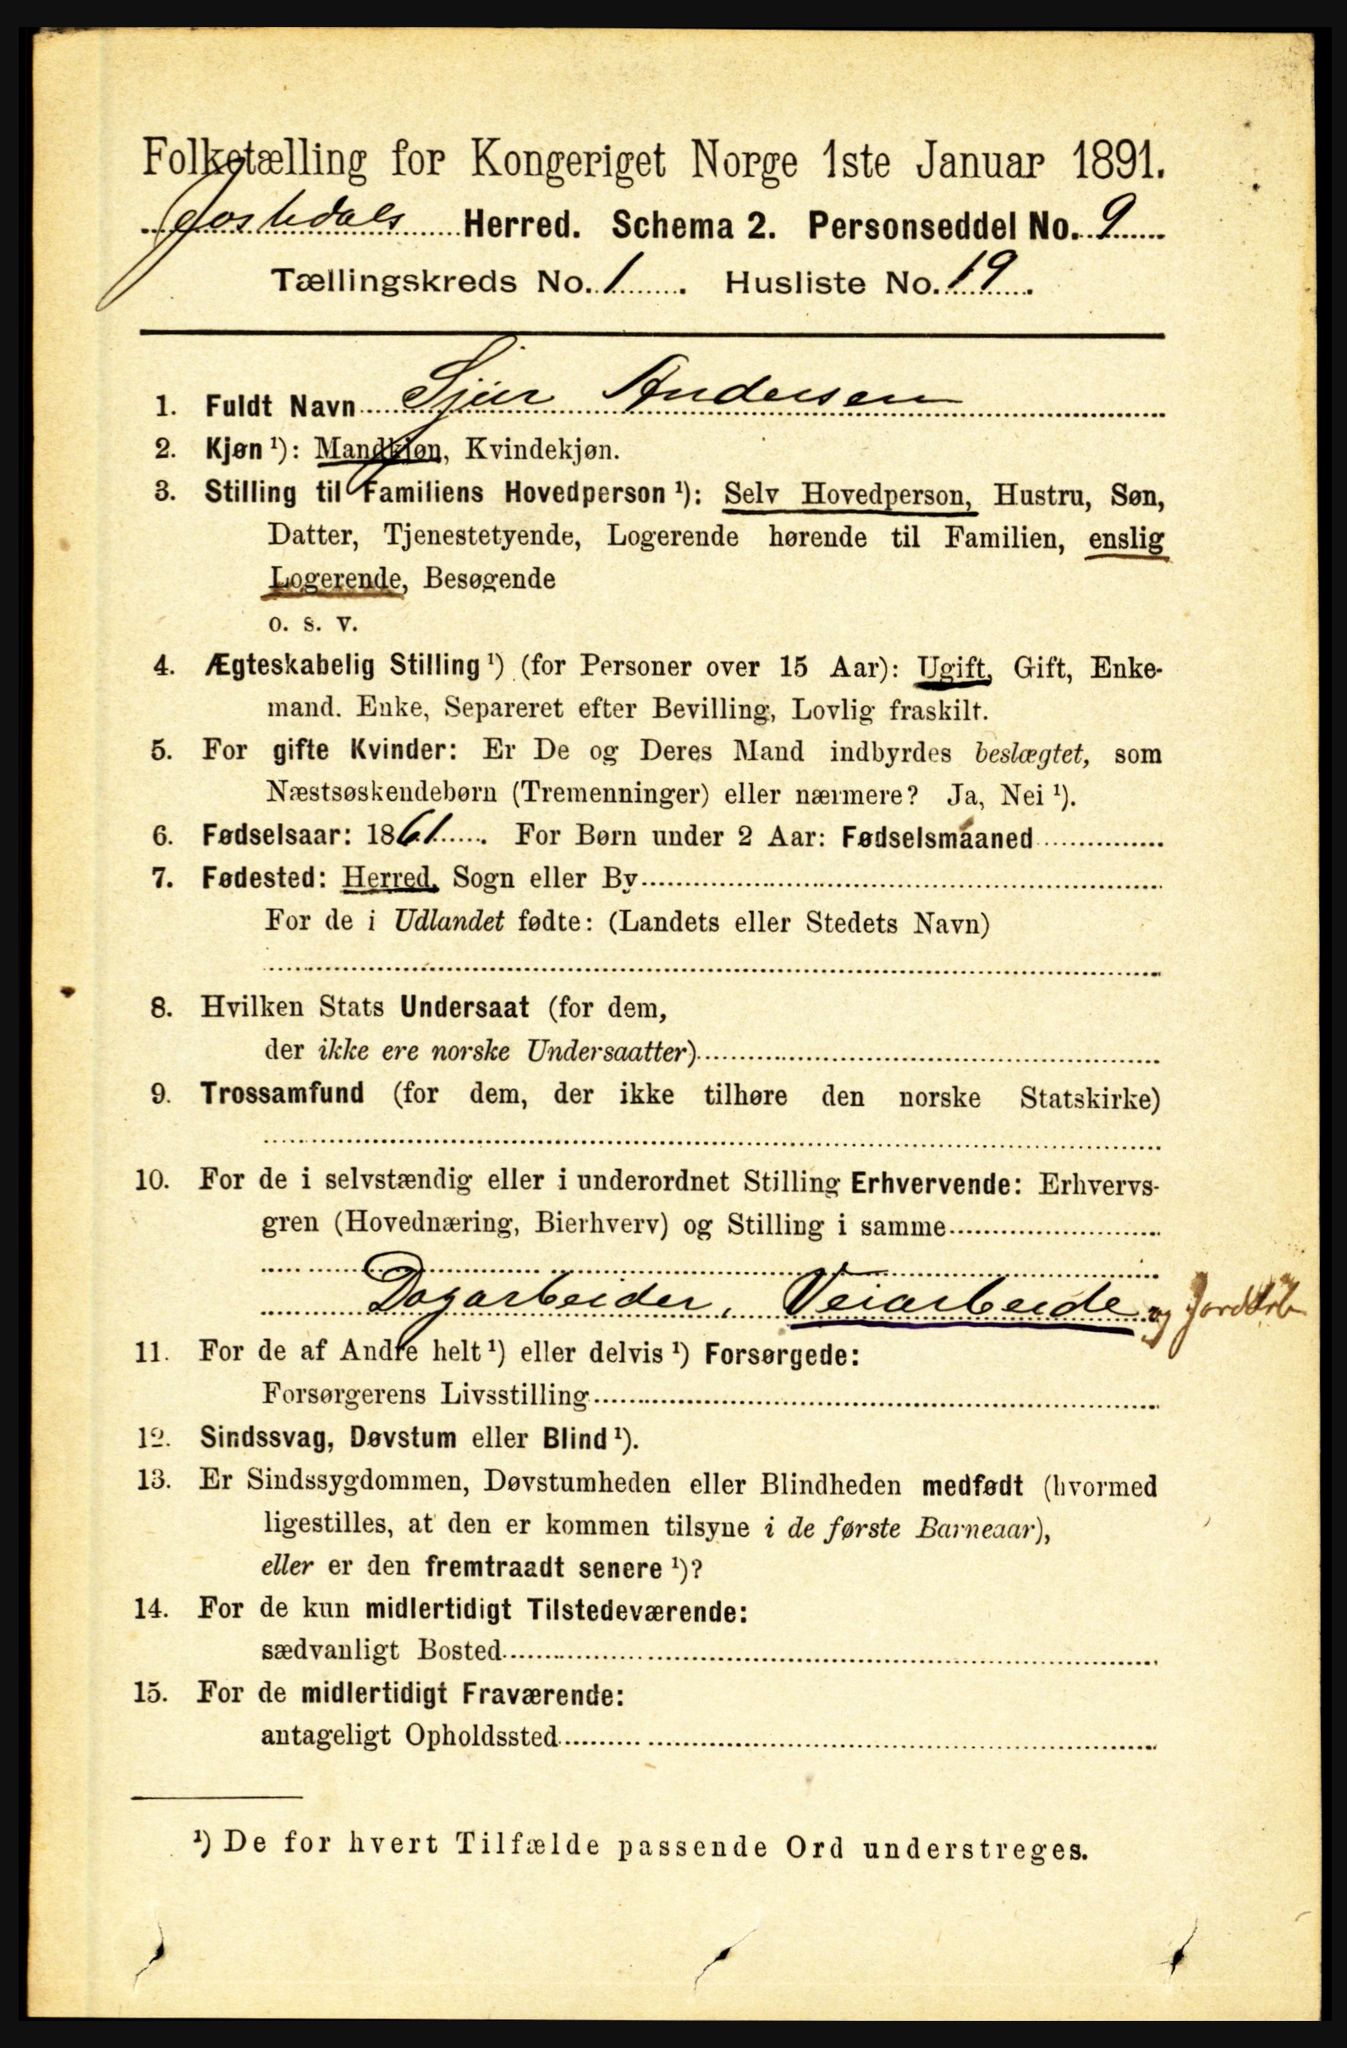 Folketælling for Kongeriget Norge 1ste Januar 1891.
Jostedals Herred. Schema 2. Personseddel No. 9
Tællingskreds No. 1. Husliste No. 19.
1. Fuldt Navn Sjur Andersen
2. Kjøn ¹): Mandkjøn, Kvindekjøn.
3. Stilling til Familiens Hovedperson ¹): Selv Hovedperson, Hustru, Søn,
Datter, Tjenestetyende, Logerende hørende til Familien, enslig
Logerende, Besøgende
o. s. v.
4. Ægteskabelig Stilling ¹) (for Personer over 15 Aar): Ugift, Gift, Enke-
mand. Enke, Separeret efter Bevilling, Lovlig fraskilt.
5. For gifte Kvinder: Er De og Deres Mand indbyrdes beslægtet, som
Næstsøskendebørn (Tremenninger) eller nærmere? Ja, Nei ¹).
6. Fødselsaar: 1861. For Børn under 2 Aar: Fødselsmaaned
7. Fødested: Herred, Sogn eller By
For de i Udlandet fødte: (Landets eller Stedets Navn)
8. Hvilken Stats Undersaat (for dem,
der ikke ere norske Undersaatter)
9. Trossamfund (for dem, der ikke tilhøre den norske Statskirke)
10. For de i selvstændig eller i underordnet Stilling Erhvervende: Erhvervs-
gren (Hovednæring, Bierhverv) og Stilling i samme
Dagarbeider, Veiarbeide og Jordarb
11. For de af Andre helt ¹) eller delvis ¹) Forsørgede:
Forsørgerens Livsstilling
12. Sindssvag, Døvstum eller Blind ¹).
13. Er Sindssygdommen, Døvstumheden eller Blindheden medfødt (hvormed
ligestilles, at den er kommen tilsyne i de første Barneaar),
eller er den fremtraadt senere ¹)?
14. For de kun midlertidigt Tilstedeværende:
sædvanligt Bosted
15. For de midlertidigt Fraværende:
antageligt Opholdssted
¹) De for hvert Tilfælde passende Ord understreges.